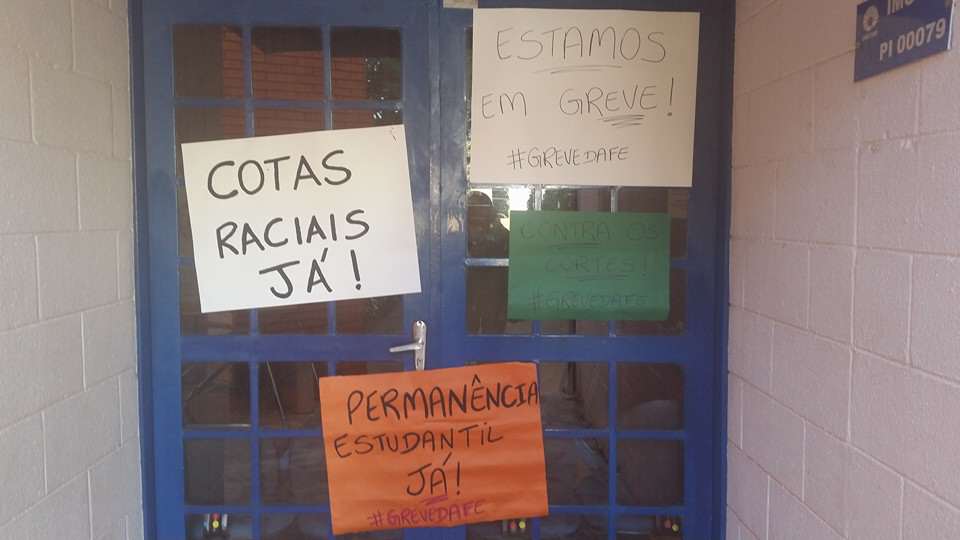 COTAS
RACIAIS
JÁ!
ESTAMOS
EM GREVE!
#GREVEDAFE
CONTRA OS
CORTES!
#GREVEDAFE
PERMANÊNCIA
ESTUDANTIL
JÁ!
#GREVEDAFE
PI 00079